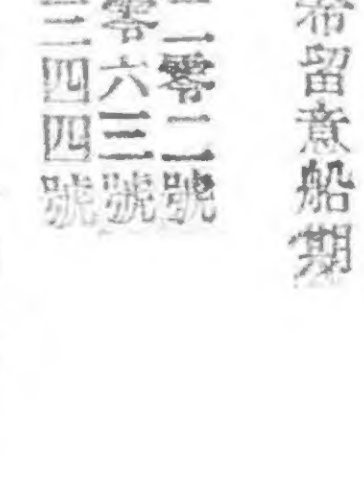 希留意船期
二零二號
零六三號
三四四號